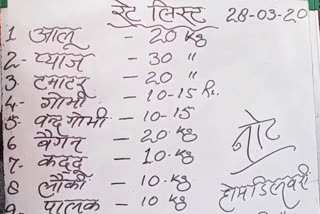 रेट लिस्ट 28-03-20
1 आलू - 20 Kg
2- प्याज - 30 "
3 - टमाटर - 20 "
4- गोभी - 10-15 Rs.
5 बन्दगोभी - 10-15
6 बैंगन - 20.Kg
7- कद्दू - 10.Kg
8 लौकी - 10.Kg
9. पालक - 10 Kg
नोट
होमडिलवरी